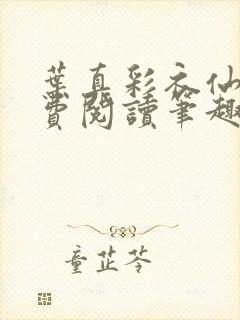 葉真彩衣仙
費閱讀筆趣
童芷苓